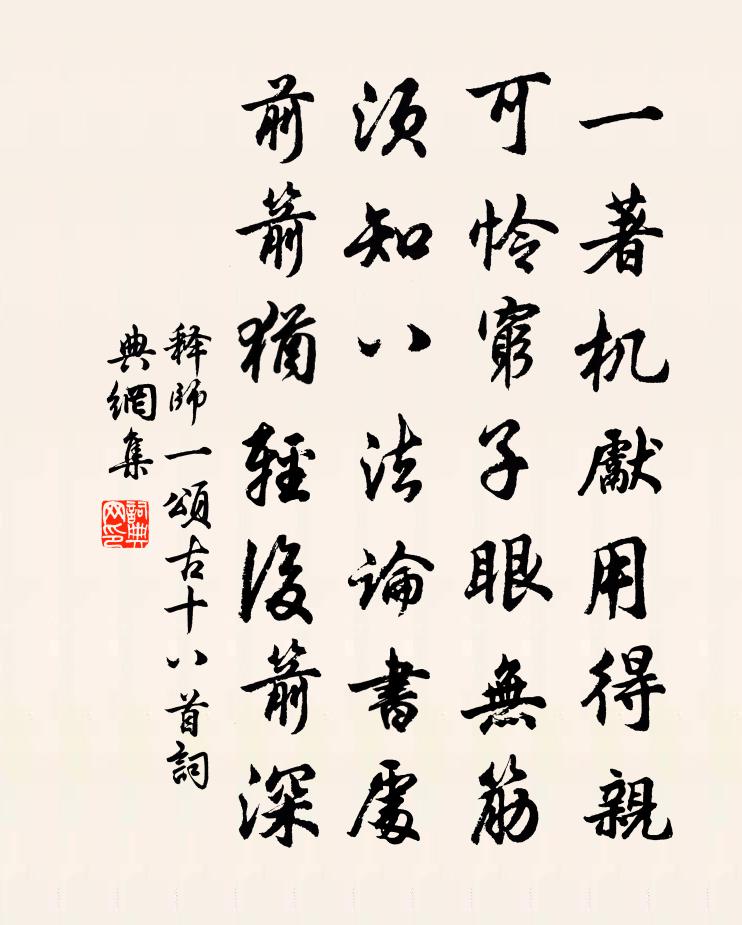 一著机獻用得親
可怜窮子眼無筋
须知八法論書處
前箭猶輕後箭深
释師一頌古十八首詞
典網集
詞典网印